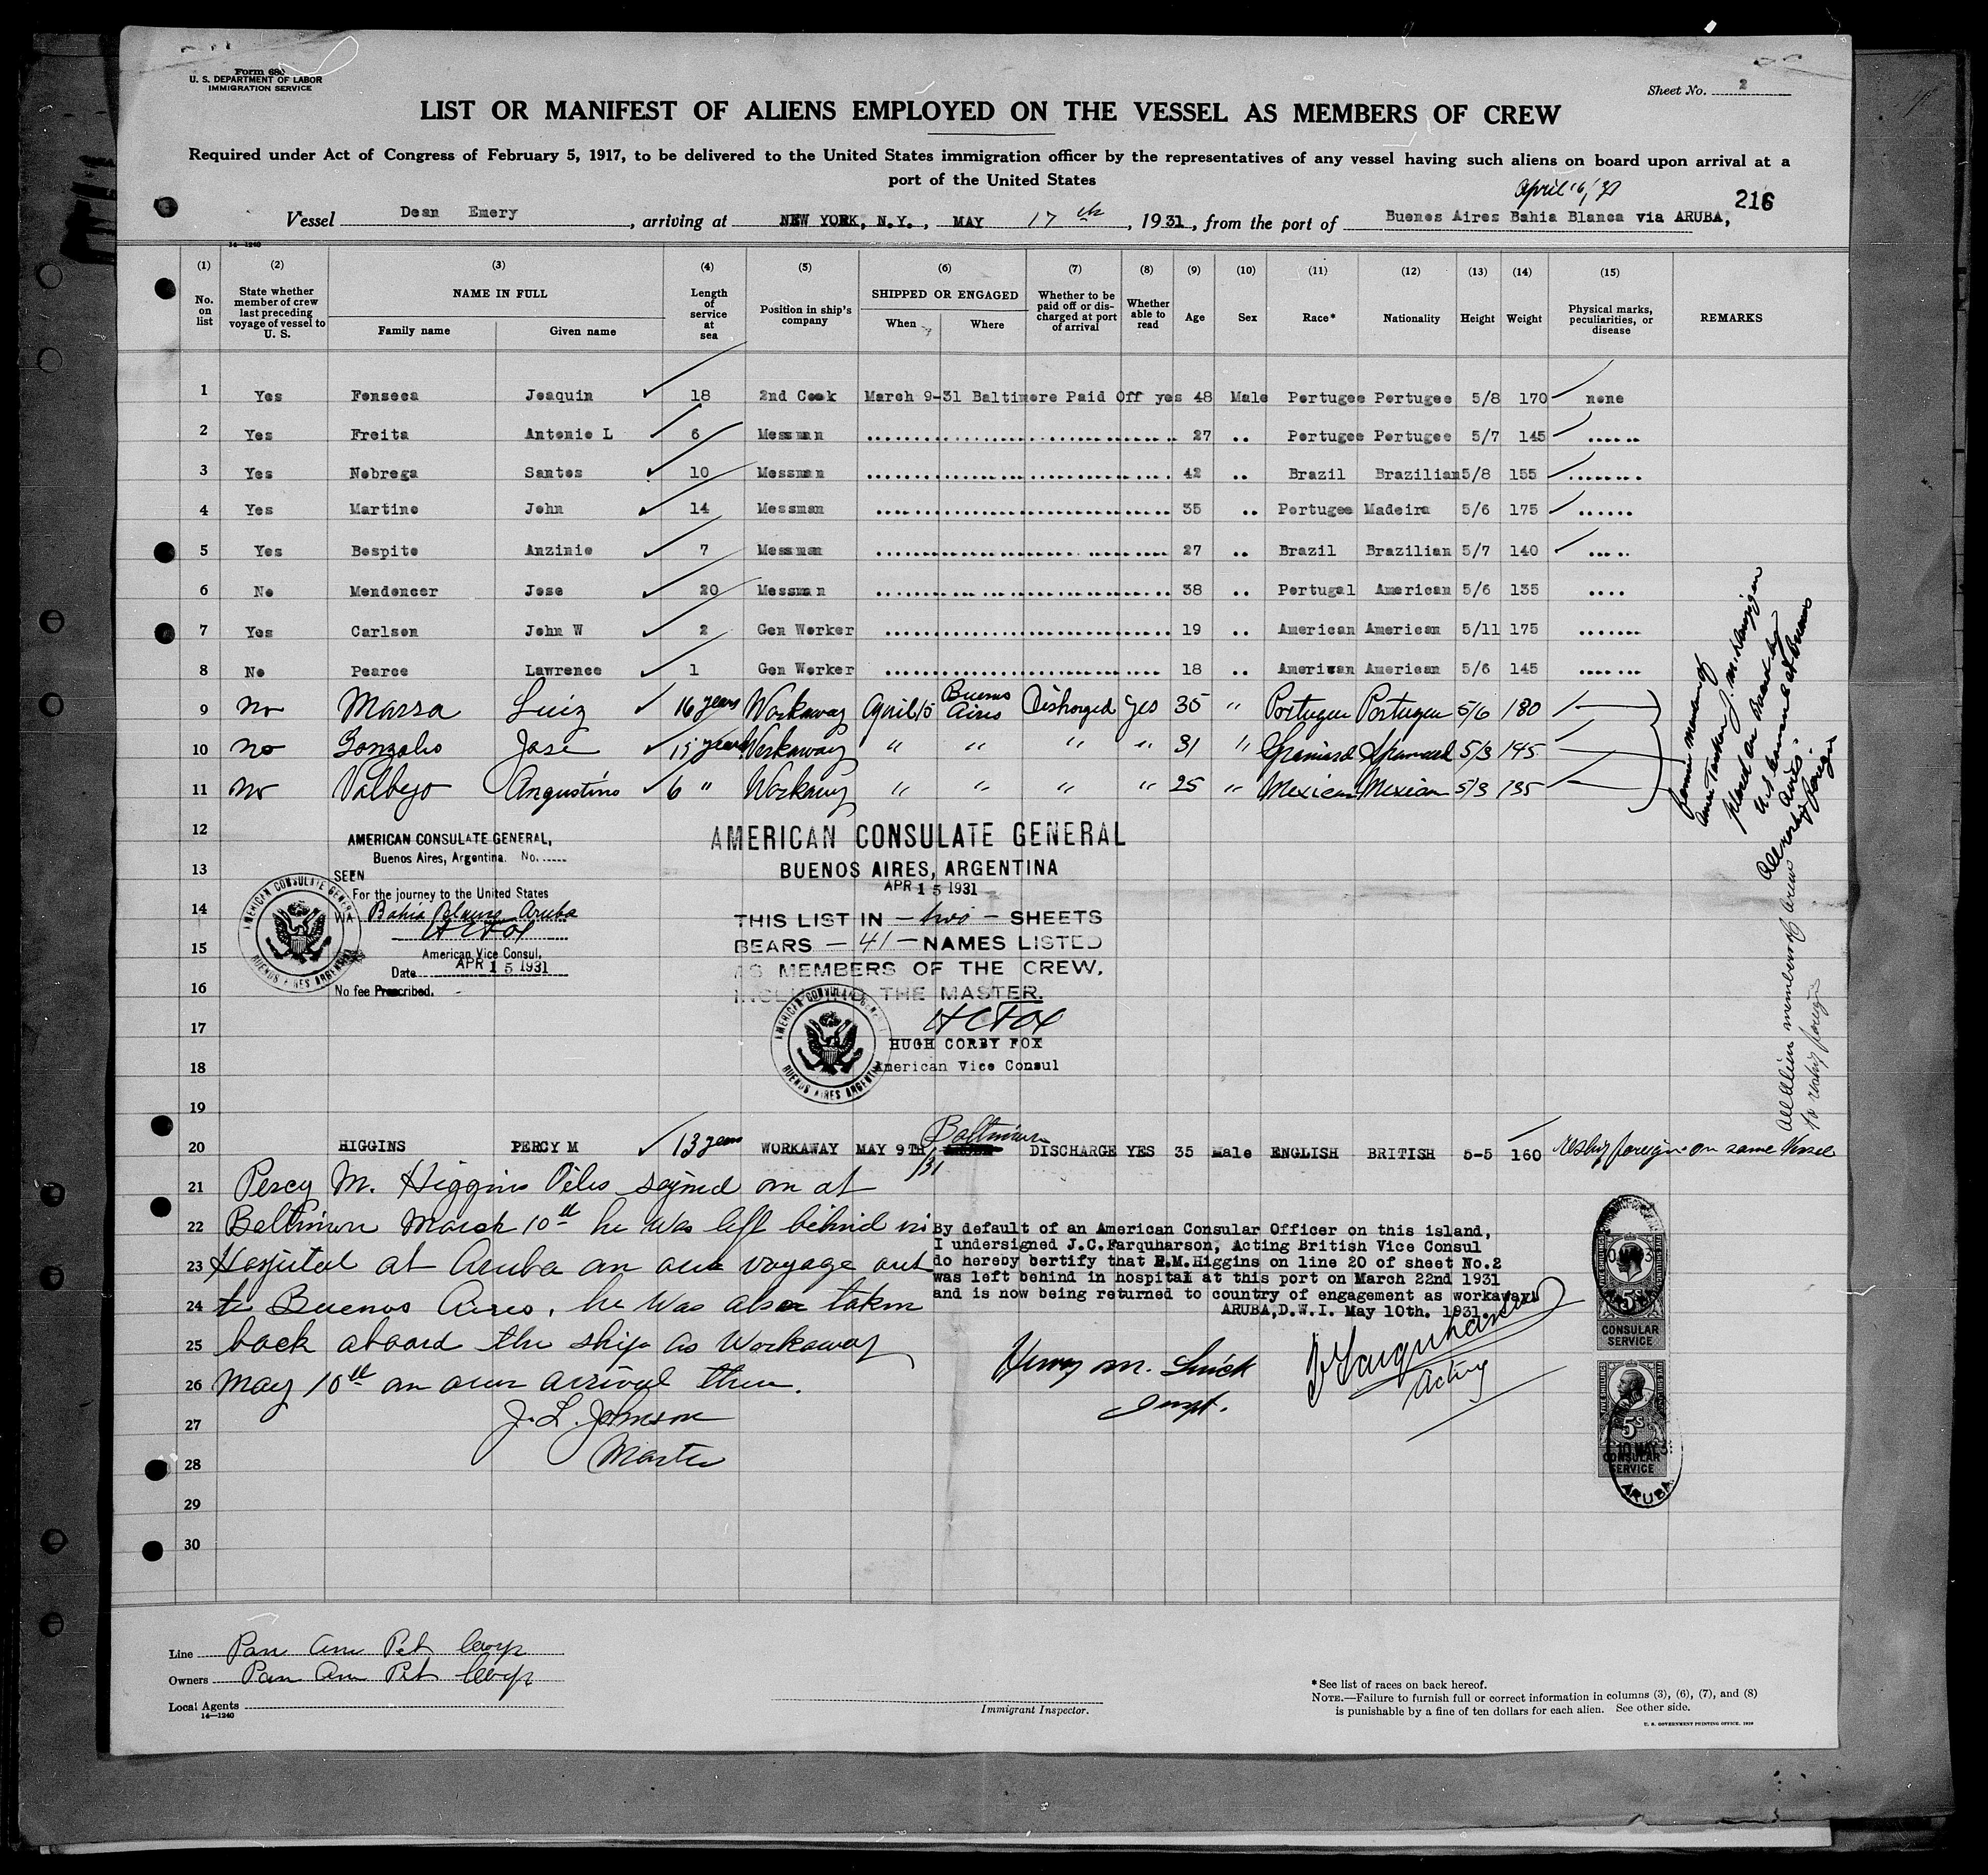 Form 680
U. S. DEPARTMENT OF LABOR
IMMIGRATION SERVICE
Sheet No. 2
LIST OR MANIFEST OF ALIENS EMPLOYED ON THE VESSEL AS MEMBERS OF CREW
Required under Act of Congress of February 5, 1917, to be delivered to the United States immigration officer by the representatives of any vessel having such aliens on board upon arrival at a
port of the United States
216
Vessel Dean Emery, arriving at NEW YORK, N.Y., MAY 17th, 1931, from the port of Buenos Aires Bahia Blanca via ARUBA,
14—1240
(1) (2) (3) (4) (5) (6) (7) (8) (9) (10) (11) (12) (13) (14) (15)
No. on list
State whether member of crew last preceding voyage of vessel to U. S.
NAME IN FULL
Family name Given name
Length of service at sea
Position in ship's company
SHIPPED OR ENGAGED
When Where
Whether to be paid off or discharged at port of arrival
Whether able to read
Age Sex Race* Nationality Height Weight
Physical marks, peculiarities, or disease
REMARKS
1 Yes Fonseca Joaquin 18 2nd Cook March 9-31 Baltimore Paid Off yes 48 Male Portugee Portugee 5/8 170 none
2 Yes Freita Antonio L 6 Messman 27 .. Portugee Portugee 5/7 145
3 Yes Nobrega Santos 10 Messman 42 .. Brazil Brazilian 5/8 155
4 Yes Martino John 14 Messman 35 .. Portugee Madeira 5/6 175
5 Yes Bespito Anzinio 7 Messman 27 .. Brazil Brazilian 5/7 140
6 No Mendoncer Jose 20 Messman 38 .. Portugal American 5/6 135
7 Yes Carlson John W 2 Gen Worker 19 .. American American 5/11 175
8 No Pearce Lawrence 1 Gen Worker 18 .. American American 5/6 145
9 No Massa Luiz 16 years Workaway April 15 Buenos Aires Discharged yes 35 " Portugee Portugee 5/6 180
10 No Gonzales José 15 years Workaway " " " " 31 " Spaniard Spaniard 5/3 145
11 No Vallejo Angustino 6 " Workaway " " " " 25 " Mexican Mexican 5/3 135
placed on board by
U.S. Consul at Buenos
Aires
All reship foreign
All Alien members of crew
to reship foreign
12
13
14
15
16
17
18
19
AMERICAN CONSULATE GENERAL,
Buenos Aires, Argentina. No.
SEEN
For the journey to the United States
VIA Bahia Blanca Aruba
H C Fox
American Vice Consul.
Date APR 15 1931
No fee Prescribed.
AMERICAN CONSULATE GENERAL
BUENOS AIRES ARGENTINA
AMERICAN CONSULATE GENERAL
BUENOS AIRES, ARGENTINA
APR 15 1931
THIS LIST IN — two — SHEETS
BEARS — 41 — NAMES LISTED
AS MEMBERS OF THE CREW,
INCLUDED THE MASTER.
H C Fox
HUGH CORBY FOX
American Vice Consul
AMERICAN CONSULATE GENERAL
BUENOS AIRES ARGENTINA
20 HIGGINS PERCY M 13 years WORKAWAY MAY 9TH /31 Baltimore DISCHARGE YES 35 Male ENGLISH BRITISH 5-5 160 reship foreign on same vessel
21 Percy M. Higgins signed on at
22 Baltimore March 10th he was left behind in
23 Hospital at Aruba on our voyage out
24 to Buenos Aires, he was also taken
25 back aboard the ship as Workaway
26 May 10th on our arrival there.
27 J. L. Johnson
28 Master
29
30
By default of an American Consular Officer on this island,
I undersigned J.C.Farquharson, Acting British Vice Consul
do hereby certify that P.M.Higgins on line 20 of sheet No.2
was left behind in hospital at this port on March 22nd 1931
and is now being returned to country of engagement as workaway
ARUBA,D.W.I. May 10th. 1931.
J C Farquharson
Acting
Inspt.
5S
CONSULAR
SERVICE
5S
10 MAY 31
CONSULAR
SERVICE
ARUBA
Line Pan Am Pet Corp
Owners Pan Am Pet Corp
Local Agents
14—1240
Immigrant Inspector.
*See list of races on back hereof.
NOTE.—Failure to furnish full or correct information in columns (3), (6), (7), and (8)
is punishable by a fine of ten dollars for each alien. See other side.
U. S. GOVERNMENT PRINTING OFFICE. 1929